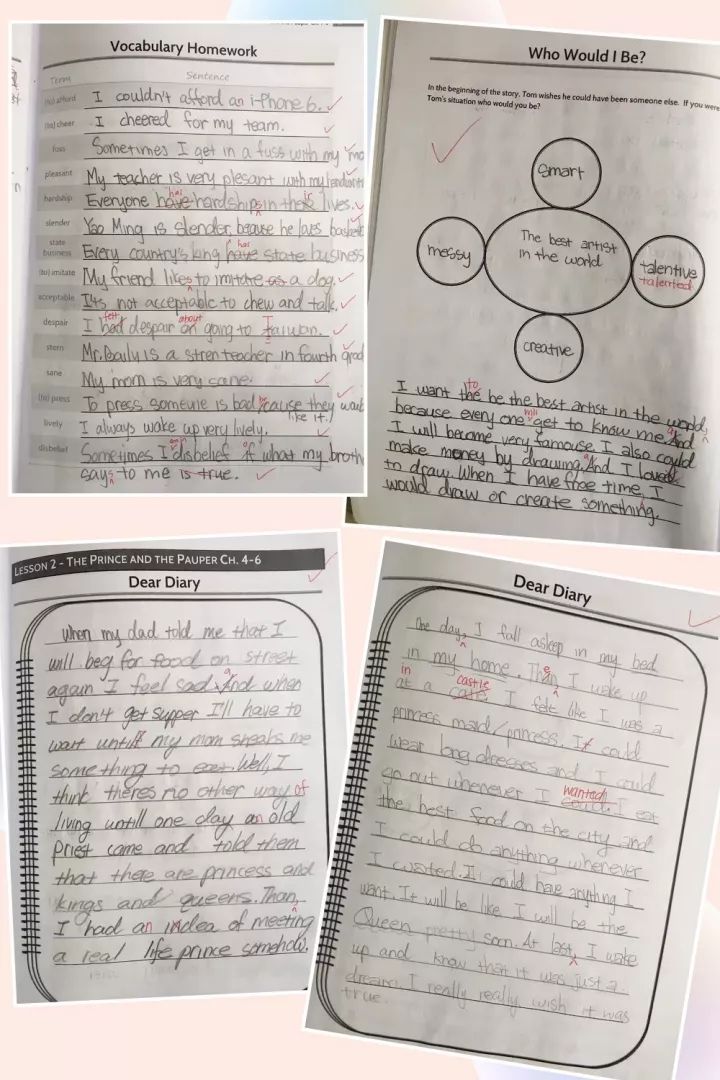 Vocabulary Homework
Term Sentence
(to) afford I couldn't afford an i-Phone 6.
(to) cheer I cheered for my team.
fuss Sometimes I get in a fuss with my mo
pleasant My teacher is very plesant with my
hardship Everyone have has hardships in there ir lives.
slender Yao Ming is slender because he loves basket
state business Every country's king have has state business
(to) imitate My friend likes to imitate as a dog.
acceptable Its not acceptable to chew and talk.
despair I had felt despair on about going to Taiwan.
stern Mr. Baily is a stren teacher in fourth grad
sane My mom is very sane.
(to) press To press someone is bad because they wont
like it.
lively I always wake up very lively.
disbelief Sometimes I disbelief of what my broth
says to me is true.
Who Would I Be?
In the beginning of the story, Tom wishes he could have been someone else. If you were
Tom's situation who would you be?
smart
messy
The best artist
in the world
talentive
talented
creative
I want the to be the best artist in the world,
because every one will get to know me. And
I will become very famouse. I also could
make money by drawing. And I loved
to draw. When I have free time, I
would draw or create something.
LESSON 2 - THE PRINCE AND THE PAUPER CH. 4-6
Dear Diary
When my dad told me that I
will beg for food on street
again I feel sad. And when
I don't get supper I'll have to
wait untill my mom streaks me
something to eat. Well, I
think theres no other way of
living untill one day an old
Priest came and told them
that there are princess and
kings and queens. Than,
I had an indea of meeting
a real life prince somehow.
Dear Diary
One day, I fall asleep in my bed
in my home. Then I wake up
in at a castle cafe. I felt like I was a
princess maid/princess. I could
wear long dresses and I could
go out whenever I wanted could. I eat
the best food on the city and
I could do anything whenever
I wanted. I could have anything I
want. It will be like I will be the
Queen pretty soon. At last, I wake
up and know that it was just a
dream. I really really wish it was
true.